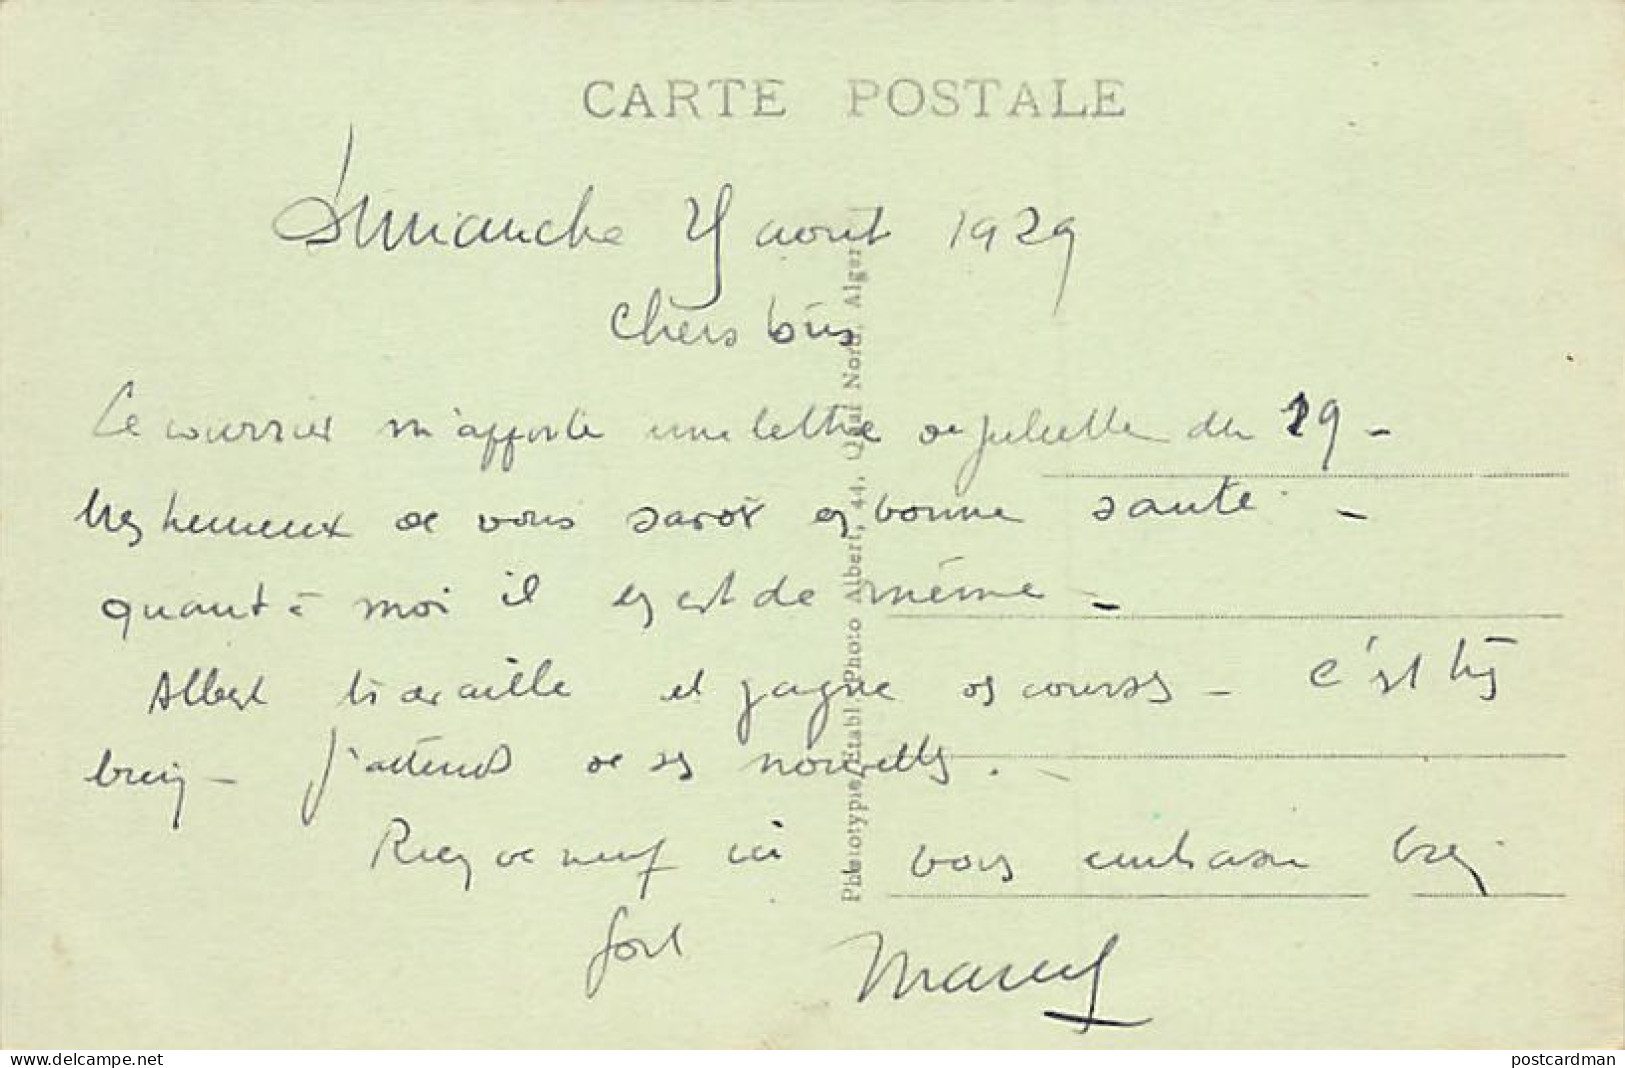 CARTE POSTALE
Dimanche 4 août 1929
Chers tous
Le courrier m'apporte une lettre de Juliette du 29 -
très heureux de vous savoir en bonne santé -
quant à moi il en est de même -
Albert travaille et gagne des courses - C'est très
bien - J'attends de ses nouvelles.
Rien de neuf ici vous embrasse bien
fort Marcel
Phototypie, Etabl. Photo Albert, 44, Quai Nord, Alger
delcampe.net
postcardman